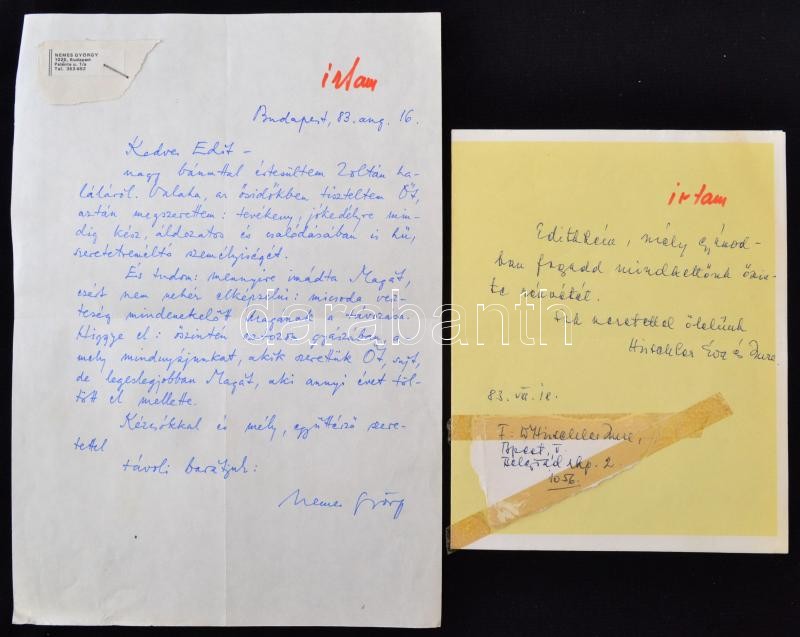 NEMES GYÖRGY
1025, Budapest
Tel. 353-652
irtam
Budapest, 83. aug. 16.
Kedves Edit –
nagy bánattal értesültem Zoltán ha-
láláról. Valaha, az ősidőkben tiszteltem Őt,
aztán megszerettem: tevékeny, jókedélyre min-
dig kész, áldozatos és csalódásában is hű,
szeretetreméltó személyiségét.
És tudom: mennyire imádta Magát,
ezért nem nehéz elképzelni: micsoda vesz-
teség mindenekelőtt Magának a távozása.
Higgye el: őszintén osztozom gyászukban, a
mely mindnyájunkat, akik szerettük Őt, sújt,
de legeslegjobban Magát, aki annyi évet töl-
tött el mellette.
Kézcsókkal és mély, együttérző szere-
tettel
távoli barátjuk:
Nemes György
irtam
Edithkém, mély gyászod-
ban fogadd mindkettőnk őszin-
te részvétét.
szeretettel ölelünk
Hirschler Éva és Imre.
83. VIII. 18.
F: Hirschler Imre,
Bpest, V.
Belgrád rkp. 2
1056.
darabanth